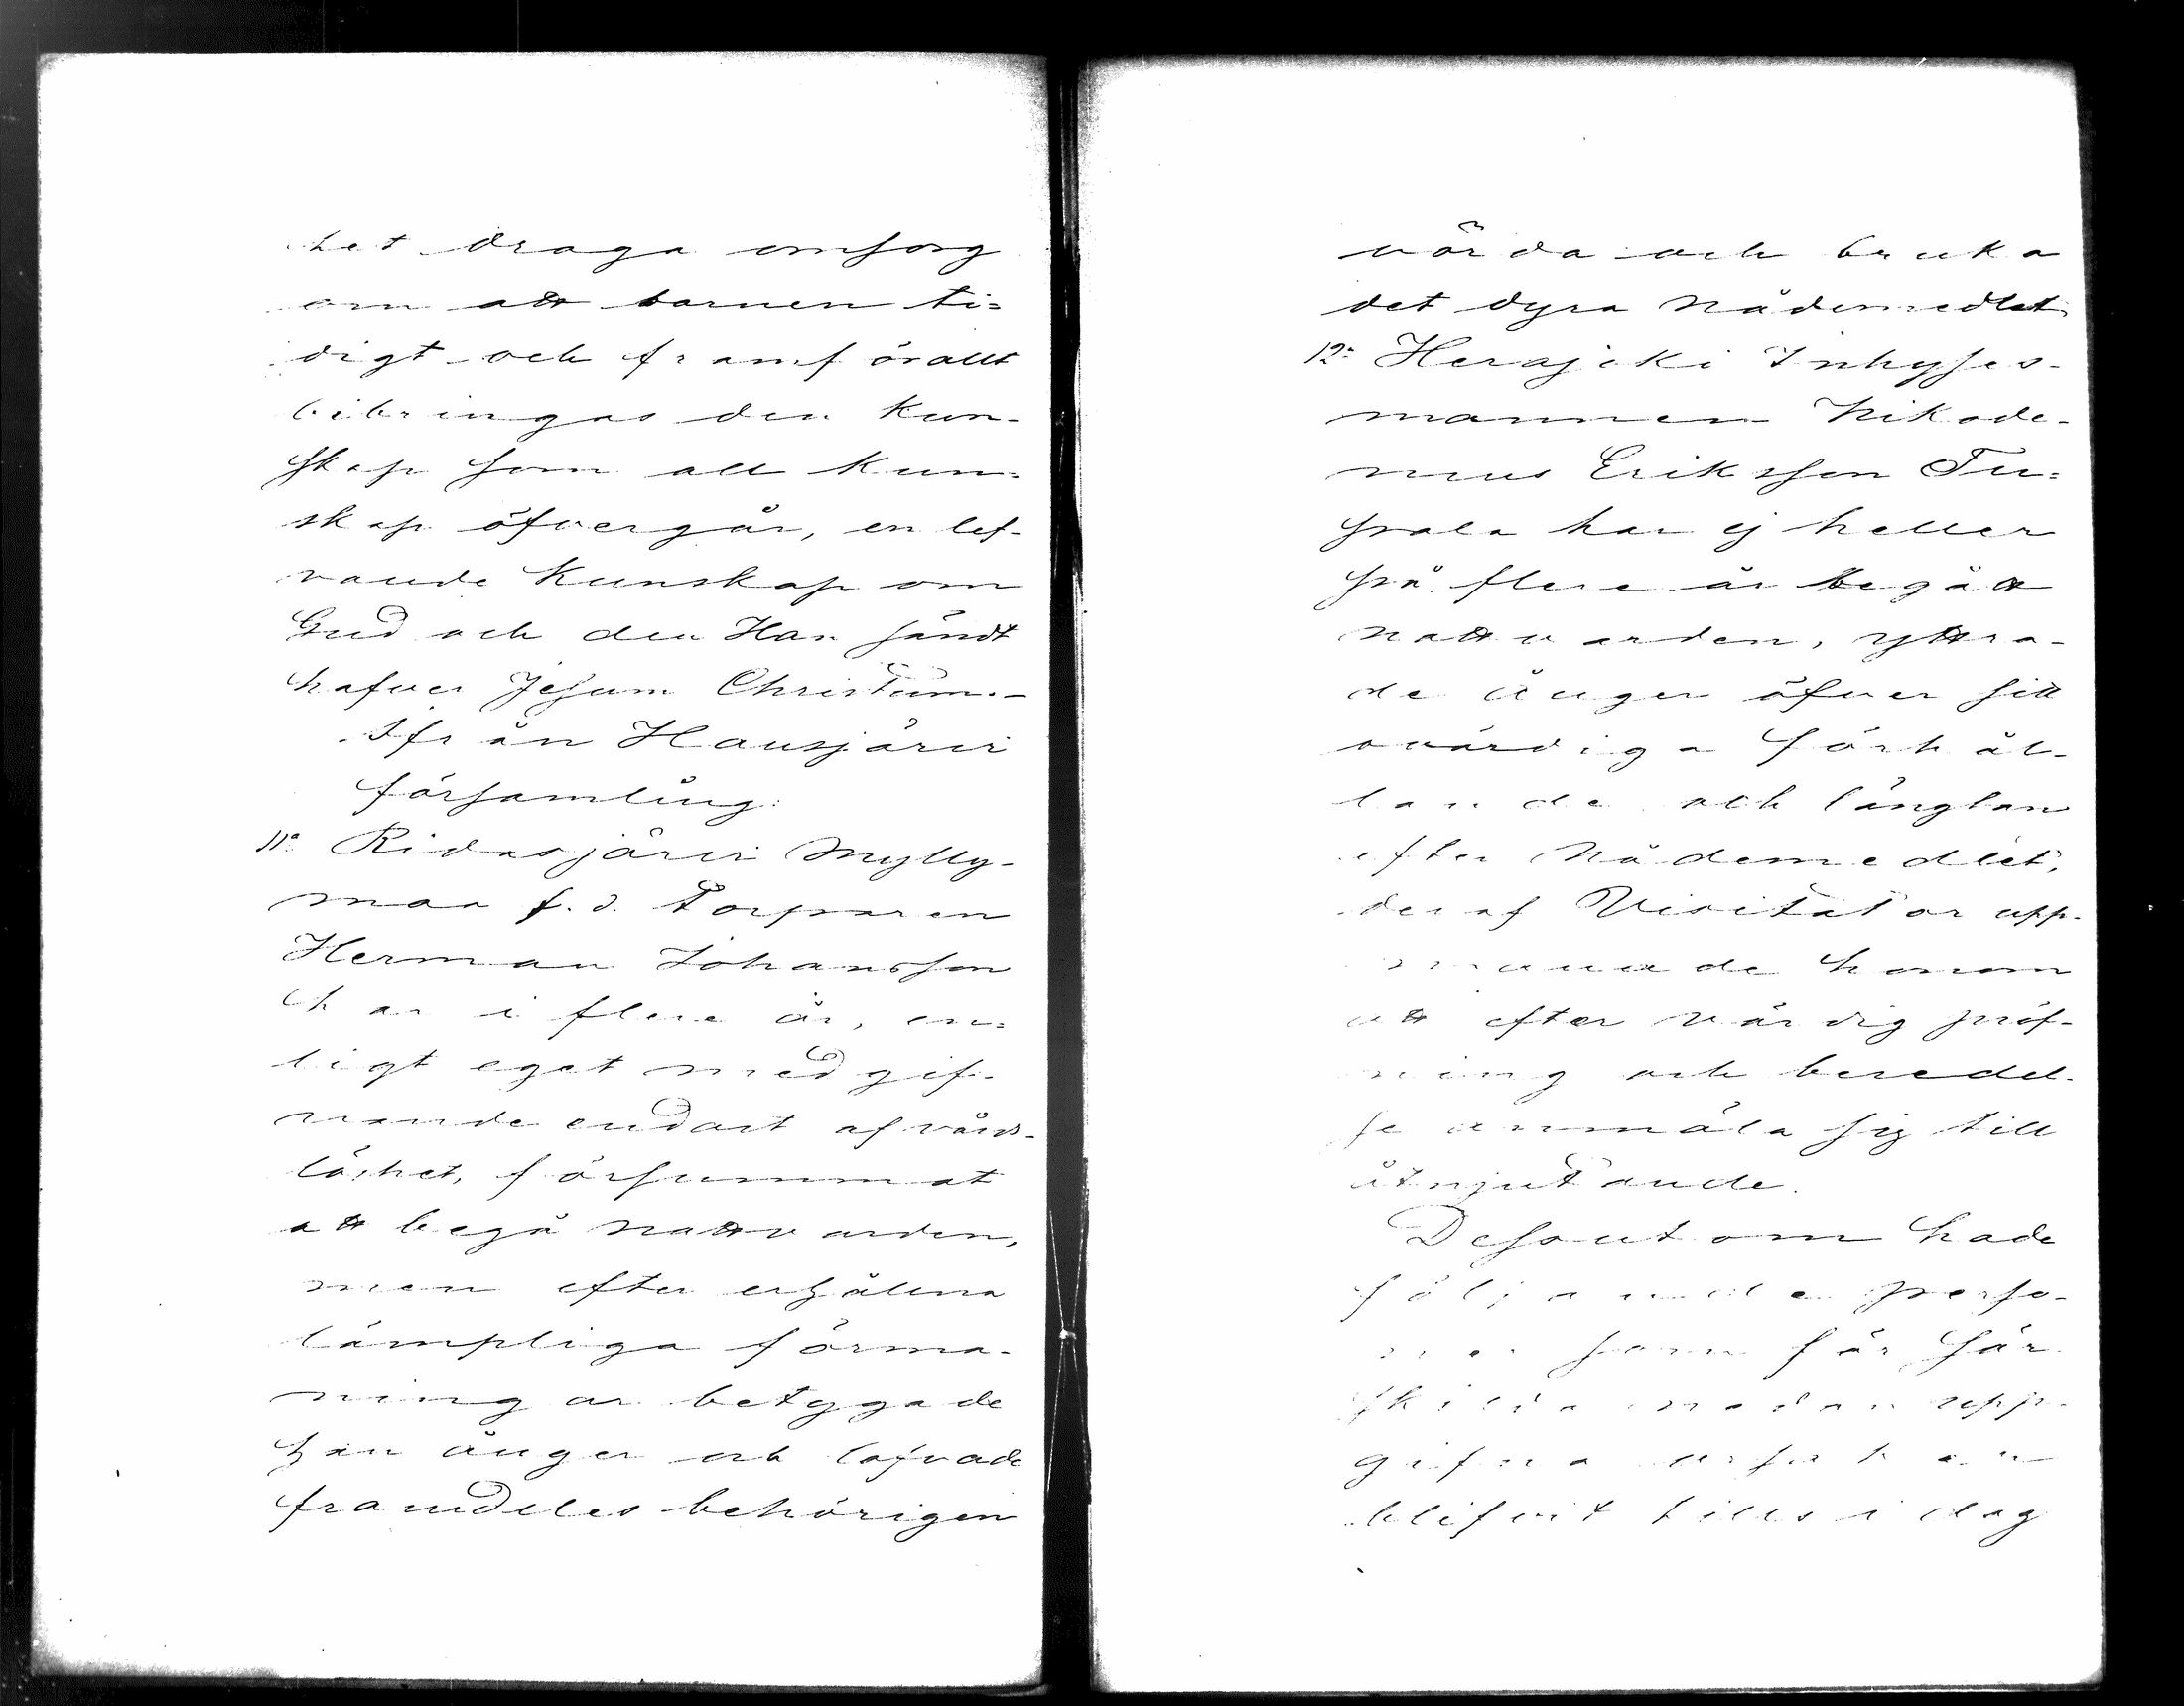 het draga omsorg
om att barnen ti=
digt och framförallt
bibringas den kun-
skap som all kun=
skap öfvergår, en lef-
vande kunskap om
Gud och den Han sändt
hafver Jesum Christum.-
Ifrån Hausjärvi
församling:
11º Ridasjärvi Mylly-
maa f.d. torparen
Herman Johansson
har i flere år, en=
ligt eget medgif-
vande endast af vårds-
löshet, försummat
att begå nattvarden,
men efter erhållna
lämpliga förma-
ningar betygade
han ånger och lofvade
framdeles behörigen
vörda och bruka
det dyra nådemedlet.
12º Herajoki Inhyses-
mannen Nikode-
mus Eriksson Tu=
pala har ej heller
på flere år begått
nattvarden, yttra-
de ånger öfver sitt
ovärdiga förhål-
lande och längtan
efter Nådemedlet,
deraf Visitator upp-
manade honom
att efter värdig pröf-
ning och beredel-
se anmäla sig till
åtnjutande.
Dessutom hade
följande perso-
ner som för sär-
skilda nedan upp-
gifna orsaken
blifvit tills i dag